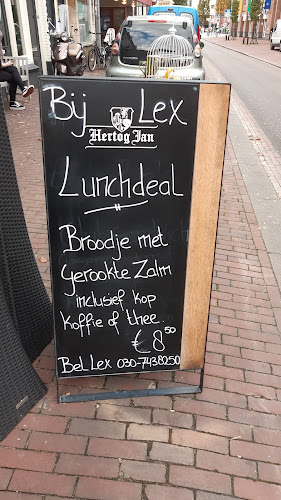 Bij Lex
Hertog Jan
Lunchdeal
Broodje met
gerookte Zalm
inclusief kop
koffie of thee.
€ 8,50
Bel Lex 030-7438250